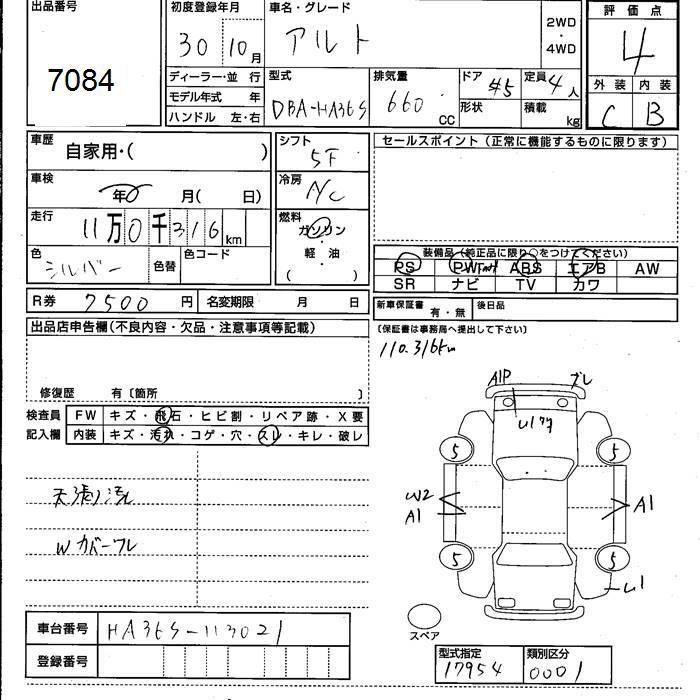 出品番号
7084
初度登録年月
30 10月
車名・グレード
アルト
2WD
・
4WD
評価点
4
外装 内装
C B
ディーラー・並 行
モデル年式 年
ハンドル 左・右
型式
DBA-HA36S
排気量
660
CC
ドア
5
形状
定員
4人
積載
kg
車歴
自家用・( )
車検
年 月( 日)
走行
11万0千316
km
色
シルバー
色替
色コード
シフト
5F
冷房
A/C
燃料
ガソリン
・
軽油
( )
セールスポイント(正常に機能するものに限ります)
装備品(純正品に限り○をつけてください)
PS PW ABS エアB AW
SR ナビ TV カワ
R券 7500 円
名変期限 月 日
新車保証書
有・無
後日品
(保証書は事務局へ提出して下さい)
110.316km
出品店申告欄(不良内容・欠品・注意事項等記載)
修復歴 有〔箇所 〕
検査員
記入欄
FW キズ・飛石・ヒビ割・リペア跡・X要
内装 キズ・汚れ・コゲ・穴・スレ・キレ・破レ
天張り汚れ
Wカバーワレ
A1P
ブレ
5 5
W2
A1
A1
5 5
スペア
車台番号 HA36S-113021
登録番号
型式指定
17954
類別区分
0001